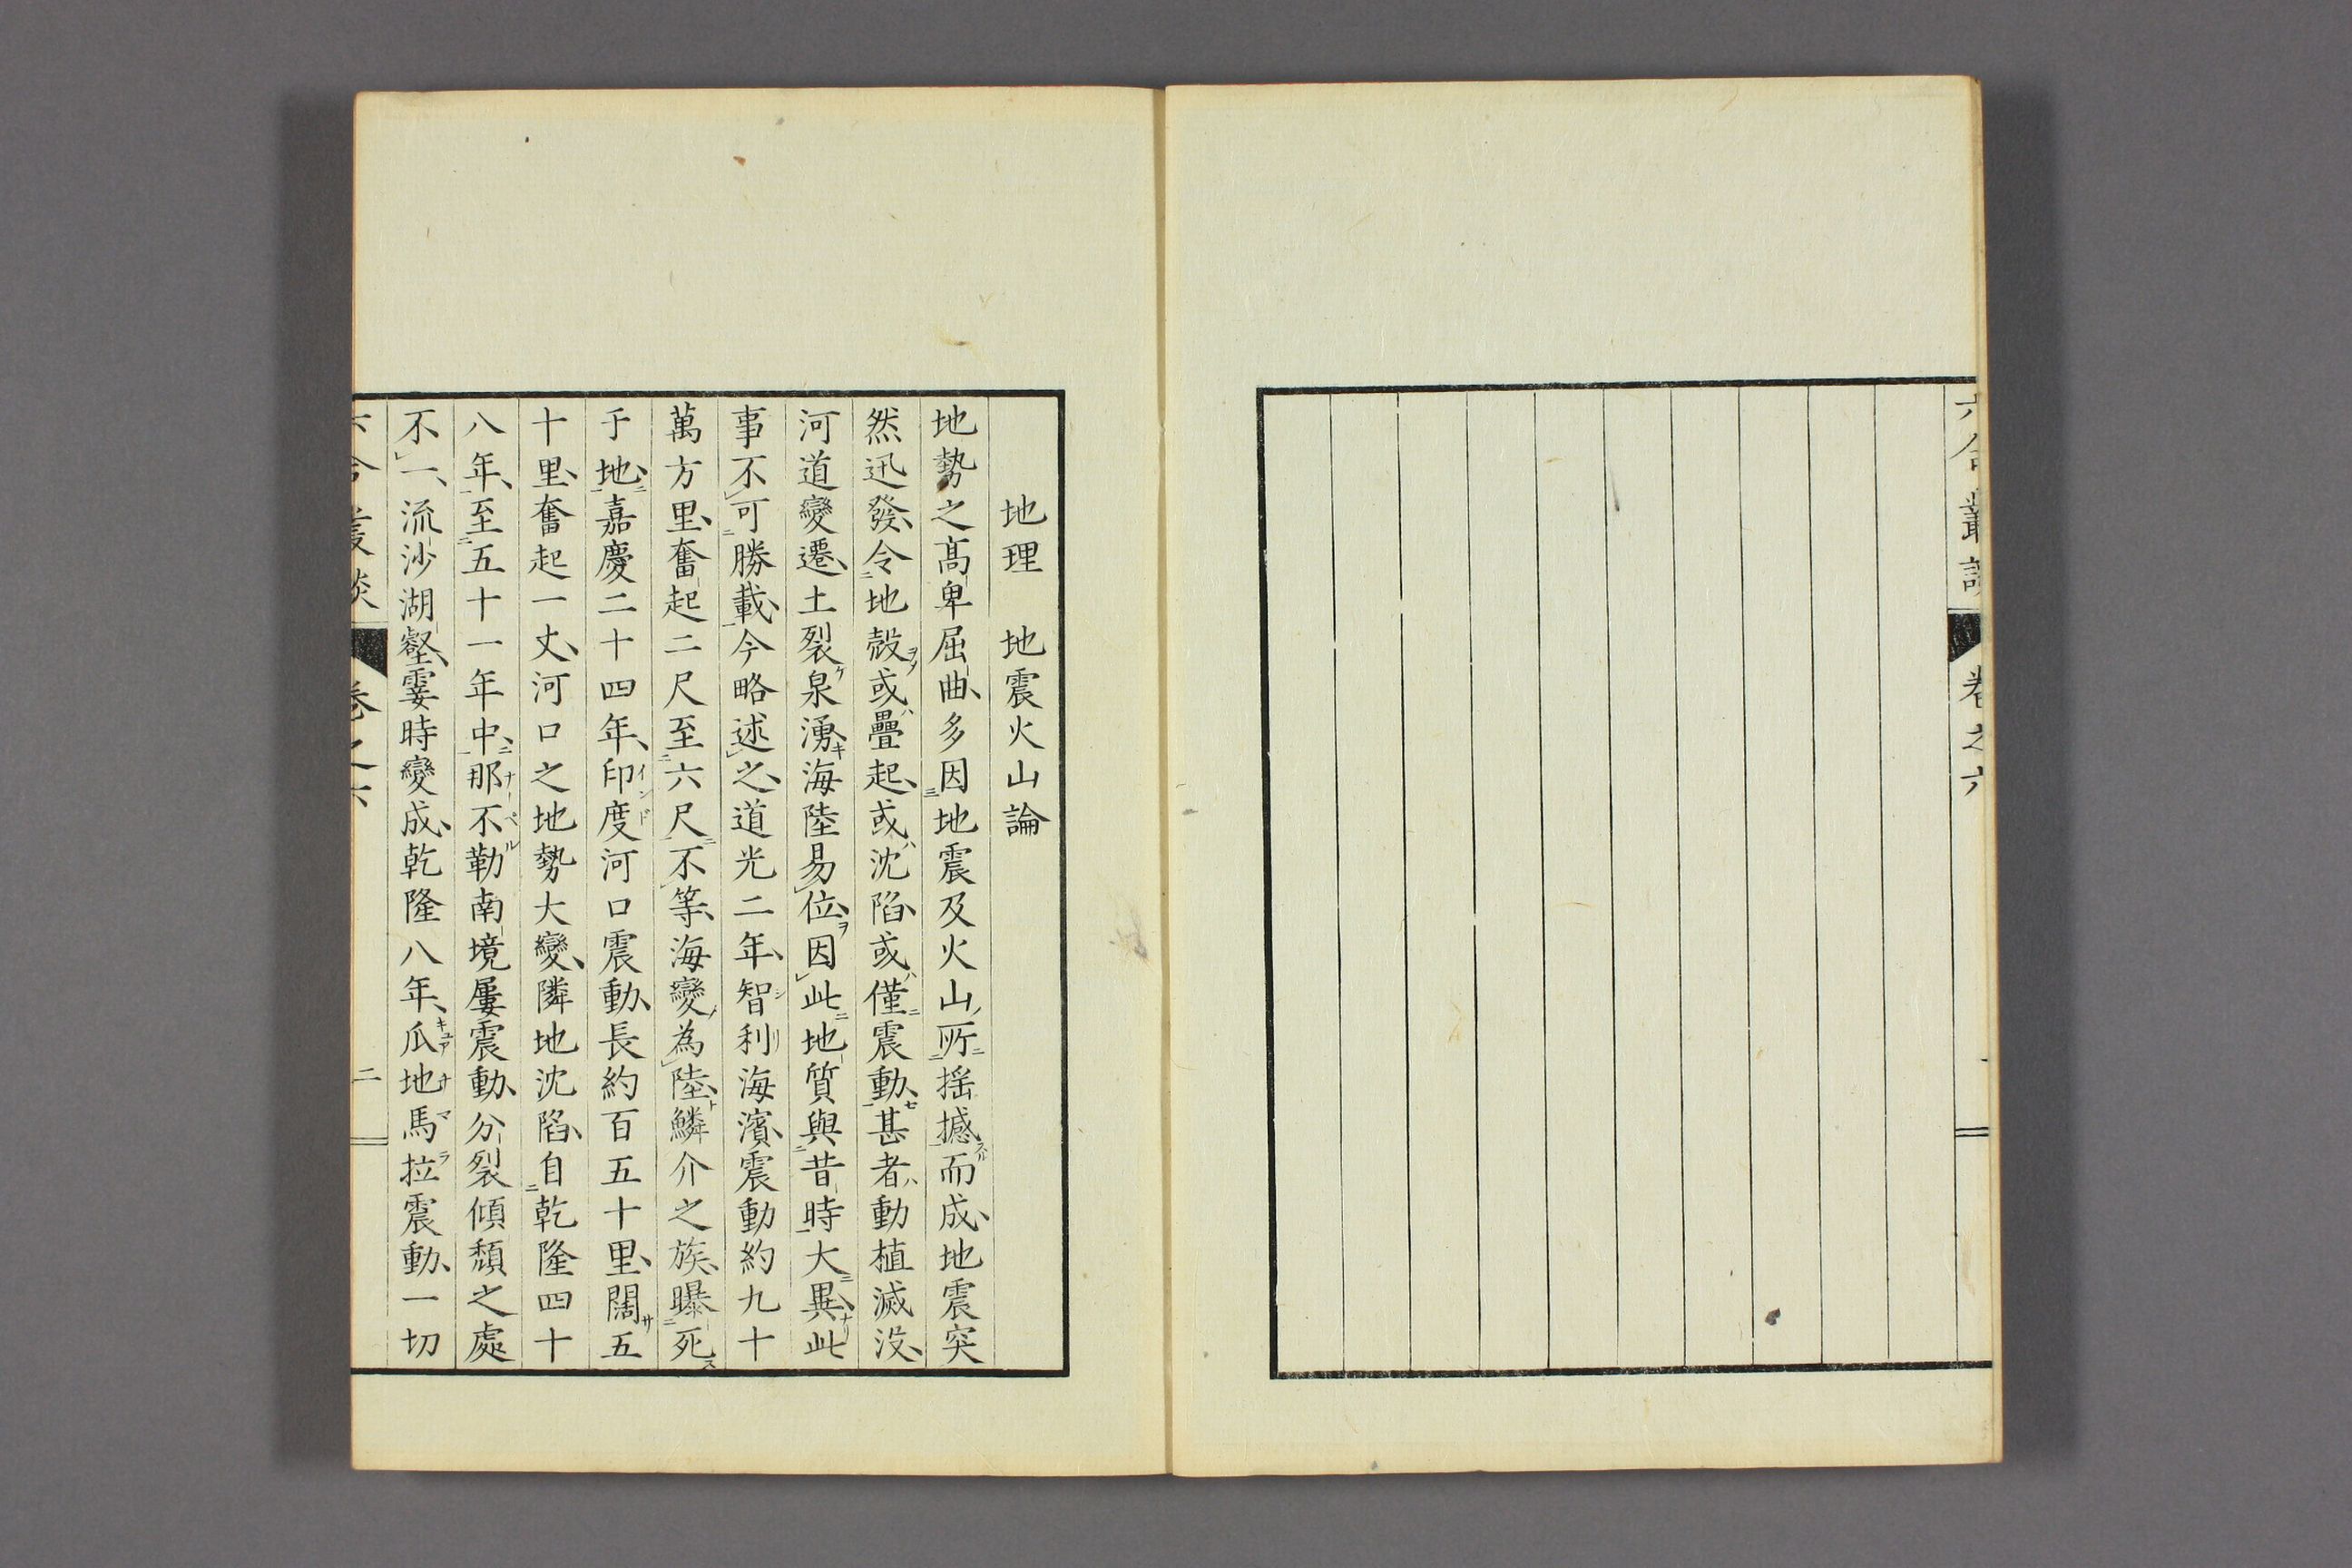 六合叢談 卷之六
地理 地震火山論
地勢之高卑屈曲、多因地震及火山所搖撼而成、地震突
然迅發、令地殼或疊起、或沈陷、或僅震動、甚者動植滅没、
河道變遷、土裂泉湧、海陸易位、因此地質與昔時大異、此
事不可勝載、今略述之、道光二年、智利海濱、震動約九十
萬方里、奮起二尺至六尺不等、海變為陸、鱗介之族、曝死
于地、嘉慶二十四年、印度河口震動、長約百五十里、闊五
十里、奮起一丈、河口之地勢大變、隣地沈陷、自乾隆四十
八年、至五十一年中、那不勒南境屢震動、分裂傾頽之處
不一、流沙湖壑、霎時變成、乾隆八年、瓜地馬拉震動、一切
六合叢談 卷之六 二